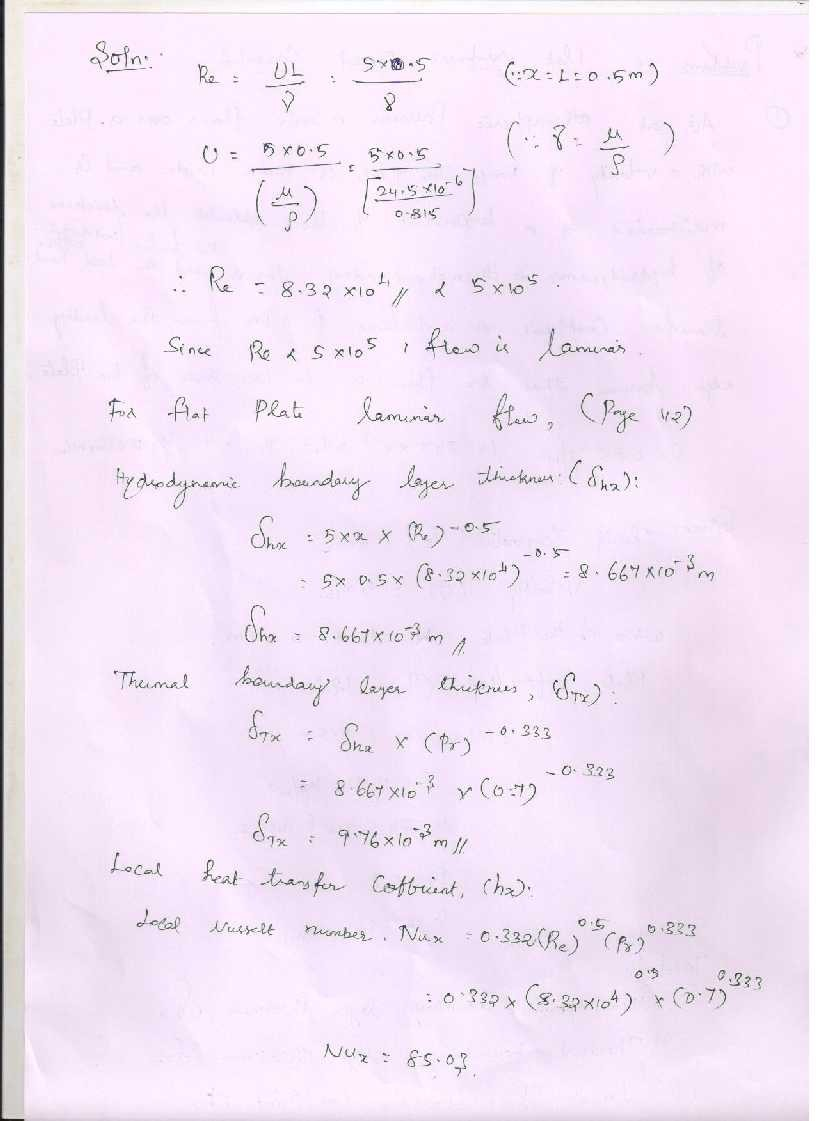 Soln:
Re = UL/γ = 5×0.5/γ (∵ x = L = 0.5m)
U = 5×0.5/(μ/ρ) = 5×0.5/[24.5×10⁻⁶/0.815] (∵ γ = μ/ρ)
∴ Re = 8.32 ×10⁴ // < 5×10⁵.
Since Re < 5×10⁵, flow is laminar.
For flat Plate laminar flow, (Page 42)
Hydrodynamic boundary layer thickness: (δhx):
δhx = 5×x × (Re)^-0.5
= 5× 0.5× (8.32×10⁴)^-0.5 = 8.667×10⁻³ m
δhx = 8.667×10⁻³ m //
Thermal boundary layer thickness, (δTx):
δTx = δhx × (Pr)^-0.333
= 8.667×10⁻³ × (0.7)^-0.333
δTx = 9.76×10⁻³ m //
Local heat transfer Coefficient, (hx):
Local Nusselt number. Nux = 0.332(Re)^0.5 (Pr)^0.333
= 0.332 × (8.32×10⁴)^0.5 × (0.7)^0.333
Nux = 85.03